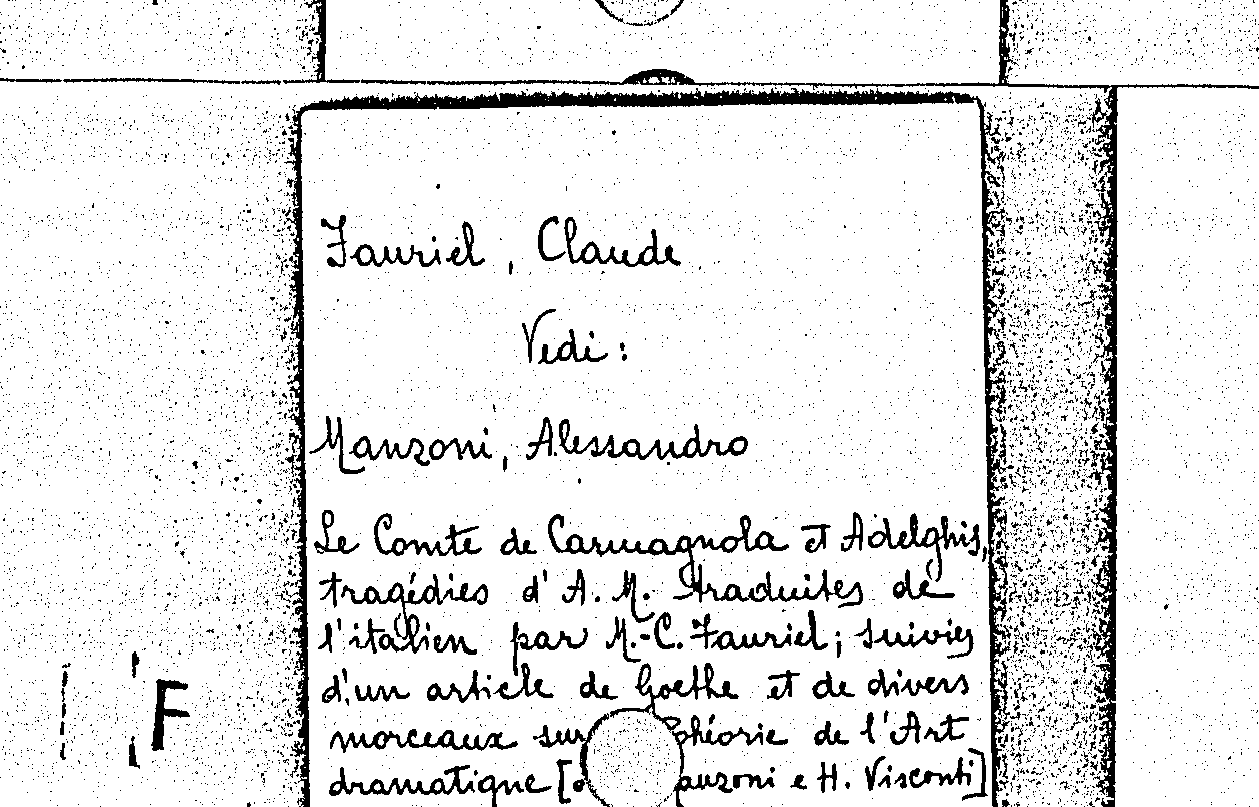 Fauriel, Claude
Vedi:
Manzoni, Alessandro
Le Comte de Carmagnola et Adelghis,
tragédies d'A. M. traduites de
l'italien par M.-C. Fauriel; suivies
d'un article de Goethe et de divers
morceaux sur théorie de l'Art
dramatique [ e H. Visconti]
F